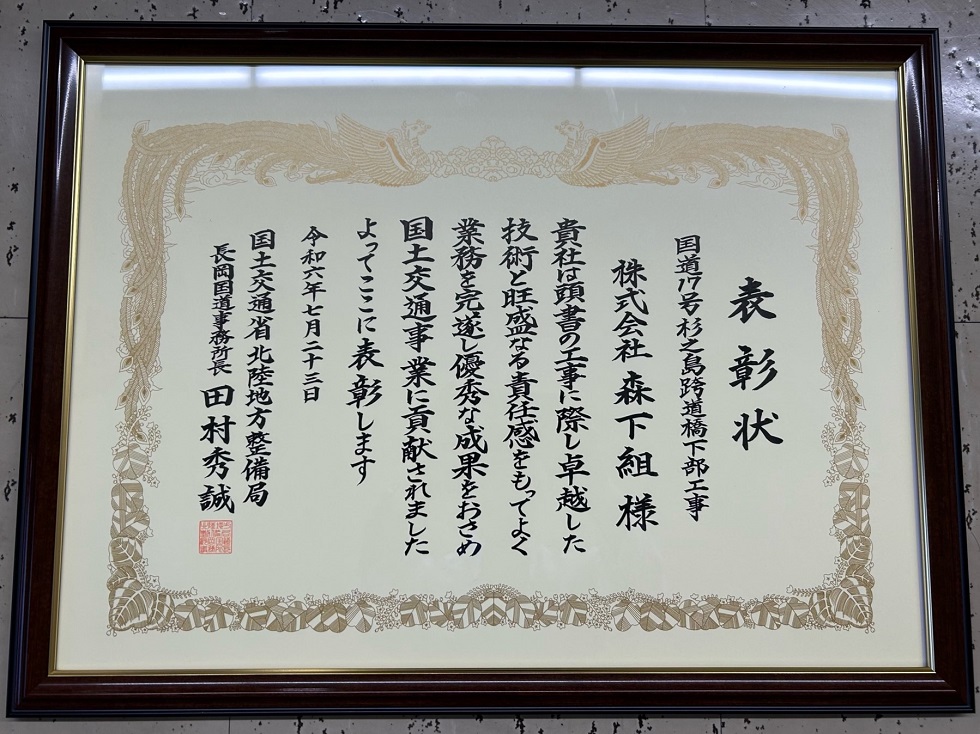 表彰状
国道17号杉之島跨道橋下部工事
株式会社 森下組 様
貴社は頭書の工事に際し卓越した
技術と旺盛なる責任感をもってよく
業務を完遂し優秀な成果をおさめ
国土交通事業に貢献されました
よってここに表彰します
令和六年七月二十三日
国土交通省北陸地方整備局
長岡国道事務所長 田村秀誠